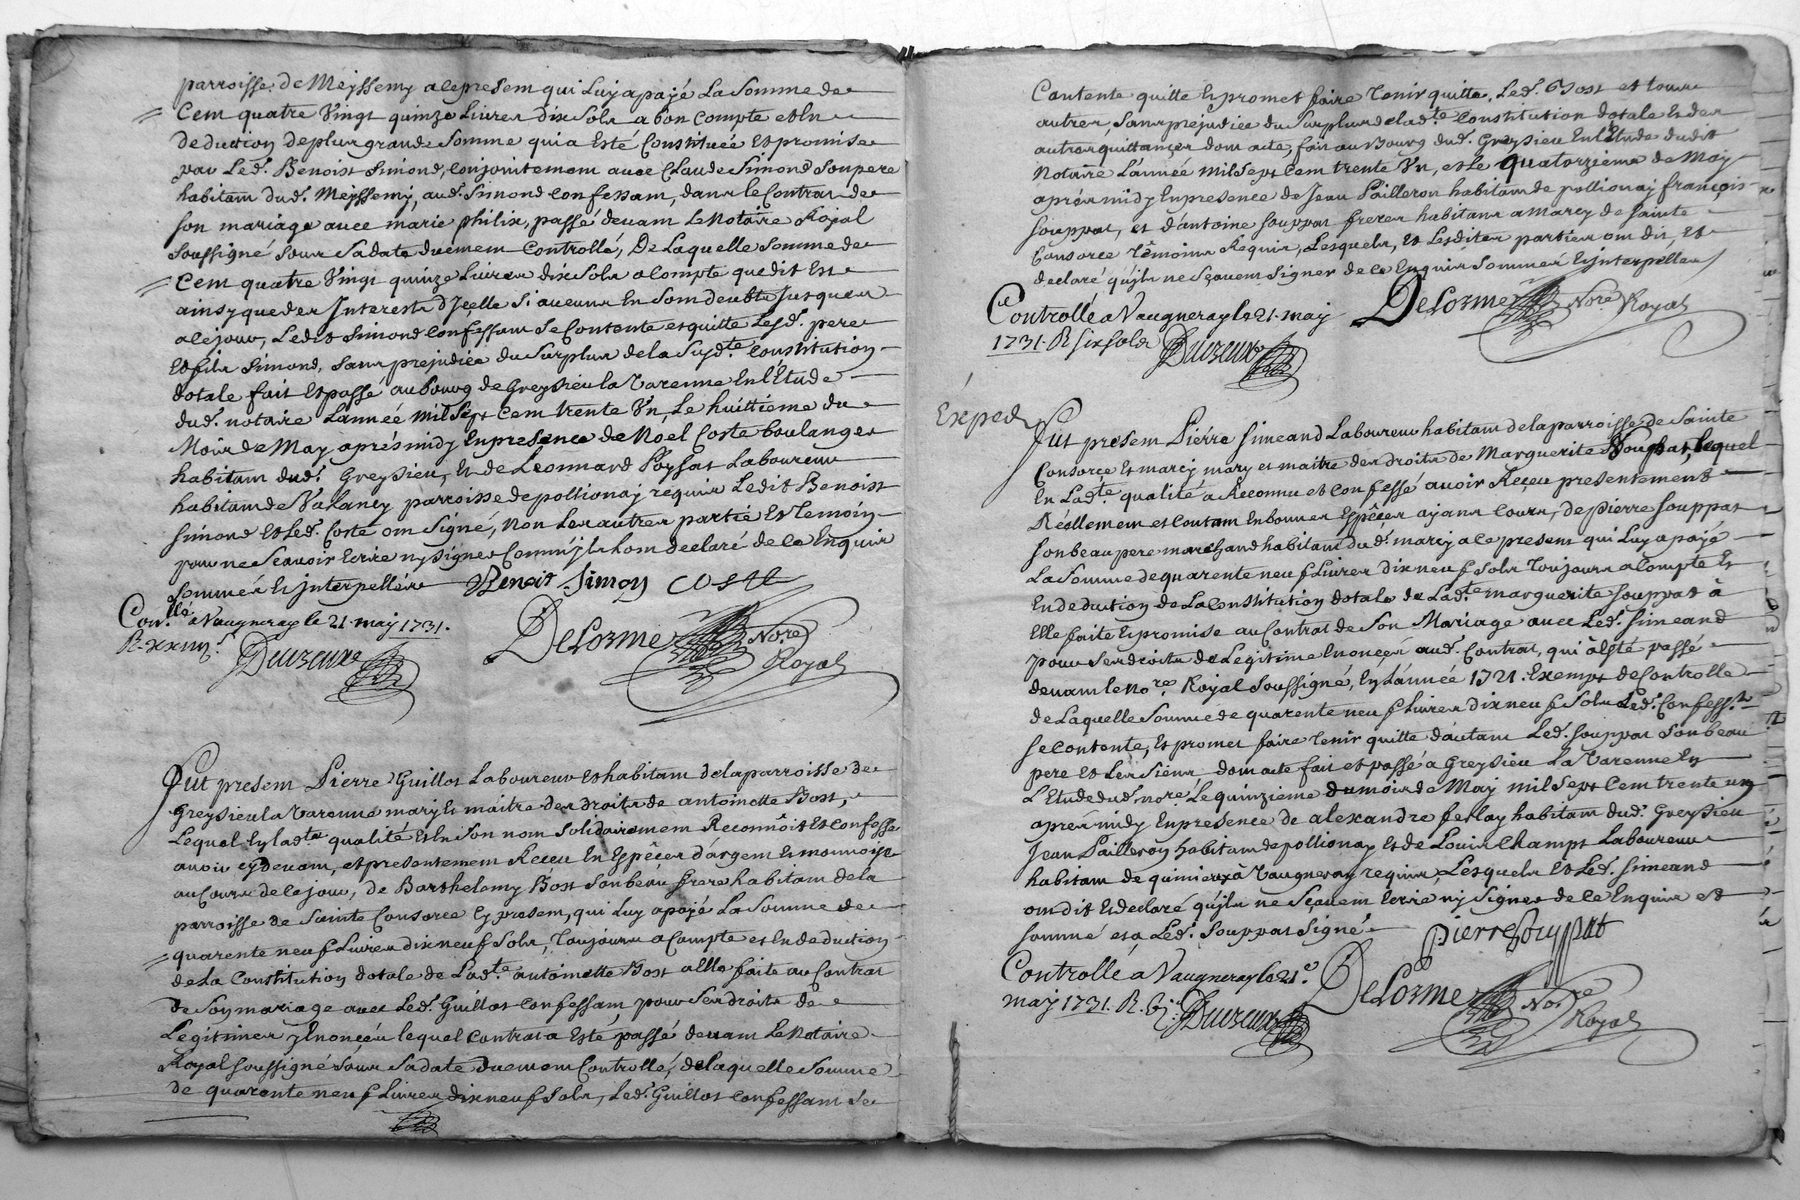 parroisse de Meyssemy ale presem qui Luy a payé La Somme de
Cem quatre Vingt quinze Livres dix Sols a bon Compte et En
deduction de plus grande Somme qui a Esté Constituée Et promise
par Led. Benoist Simond, conjointemom avec Claude Simond Son pere
habitam dud. Meyssemy, aud. Simond Confessam, dans le Contrat de
son mariage avec marie philix, passé devam Le Notaire Royal
soussigné sous Sa date duemem Controllé, De Laquelle Somme de
Cem quatre Vingt quinze Livres dix Sols a Compte que dit Est
ainsy que des Interests d'Jcelle Si aucuns En Som deubts Jusques
a ce jour, Ledit Simond Confessam Se Contente et quitte Lesd. pere
Et fils Simond, Sans prejudice du Surplus de la Susd.te Constitution
dotale fait Et passé au bourg de Greysieu la Varenne En L'Etude
dud. notaire L'année Mil Sept Cem trente Un, Le huittieme du
Mois de May aprés midy En presence de Noel Coste boulanger
habitam dud. Greysieu, Et de Leonnard Poyfat Laboureur
habitam de Valancy parroisse de pollionay requis Ledit Benoist
Simond et Led. Coste om Signé, Non Les autres partie Et Temoin
pour ne Scavoir Ecrire ny Signer Comm'jls hom declaré de ce Enquis
Sommés Et jnterpellés Benoit Simon Coste
Con.llé a Vaugneray le 21 may 1731.
R. xxiiij s. Duizeux DeLorme No.re
Royal
Fut presem Pierre Guillot Laboureur Et habitam de la parroisse de
Greysieu la Varenne mary Et maitre des droits de antoinette Bost,
Lequel En lad.te qualité Et En Son nom Solidairemem Reconnoît Et Confesse
avoir cy devam, et presentemem Receu En Espêces d'argem Et monnoye
au Cours de ce jour, de Barthelemy Bost Son beau frere habitam de la
parroisse de Sainte Consorce cy presem, qui Luy a payé La Somme de
quarente neuf Livres dix neuf Sols, Toujours a Compte et En deduction
de La Constitution dotale de Lad.te antoinette Bost a Elle faite au Contrat
de Son mariage avec Led. Guillot Confessam, pour Ses droits de
Legitimes y Enoncéu lequel Contrat a Esté passé devam Le Notaire
Royal soussigné Sous Sa date duemem Controllé, de laquelle Somme
de quarente neuf Livres dix neuf Sols, Led. Guillot Confessam Se
Contente quitte Et promet faire Tenir quitte, Led. Bost et tous
autres, Sans prejudice du Surplus de lad.te Constitution dotale Et des
autres quittances dom acte, fait au Bourg dud. Greysieu En L'Etude dudit
Notaire L'année Mil Sept Cem trente Un, et Le quatorzieme de May
aprés midy En presence de Jean Pailleron habitam de pollionay françois
souppat, et d'antoine souppat freres habitans a Marcy de Sainte
Consorce Têmoins Requis, Lesquels, Et Lesdites parties om dit, Et
declaré qu'jls ne Sçavem Signer de ce Enquis Sommés Et Interpellés
Controllé a Vaugneray le 21 may DeLorme No.re Royal
1731. R Six sols Duizeux
Exped
Fut presem Pierre Simeand Laboureur habitam de la parroisse de Sainte
Consorce Et marcy mary et maitre des droits de Marguerite Souppat, lequel
En Lad.te qualité a Reconnu et Confessé avoir Reçeu presentement
Réellemem et Contam En bonnes Espêces ayans Cours, de pierre Souppat
son beau pere marchand habitam dud. marcy a ce presem qui Luy a payé
La Somme de quarente neuf Livres dix neuf Sols Toujours a Compte Et
En deduction de La Constitution dotale de Lad.te marguerite Souppat à
Elle faite Et promise au Contrat de Son Mariage avec Led. Simeand
pour Ses droits de Legitime Enoncés aud. Contrat, qui à Esté passé
devam le No.re Royal Soussigné, En L'année 1721. Exempt de Controlle
de Laquelle Somme de quarente neuf Livres dix neuf Sols Led. Confess.t
se Contente, Et promet faire Tenir quitte d'autam Led. Souppat Son beau
pere Et Les Siens, dom acte fait et passé à Greysieu La Varenne En
L'Etude dud. nore. Le quinzieme du mois de May mil Sept Cem trente un
aprés midy En presence de alexandre fellay habitam dud. Greysieu
Jean Pailleron habitam de pollionay Et de Louis Champt Laboureur
habitam de quinieux à Vaugneray requis, Lesquels Et Led. Simeand
om dit Et declaré qu'jls ne Sçavem Ecrire ny Signer de ce Enquis et
sommé et a Led. Souppat Signé pierre Souppat
Controllé a Vaugneray le 21e DeLorme No.re
may 1731. R. Duizeux Royal